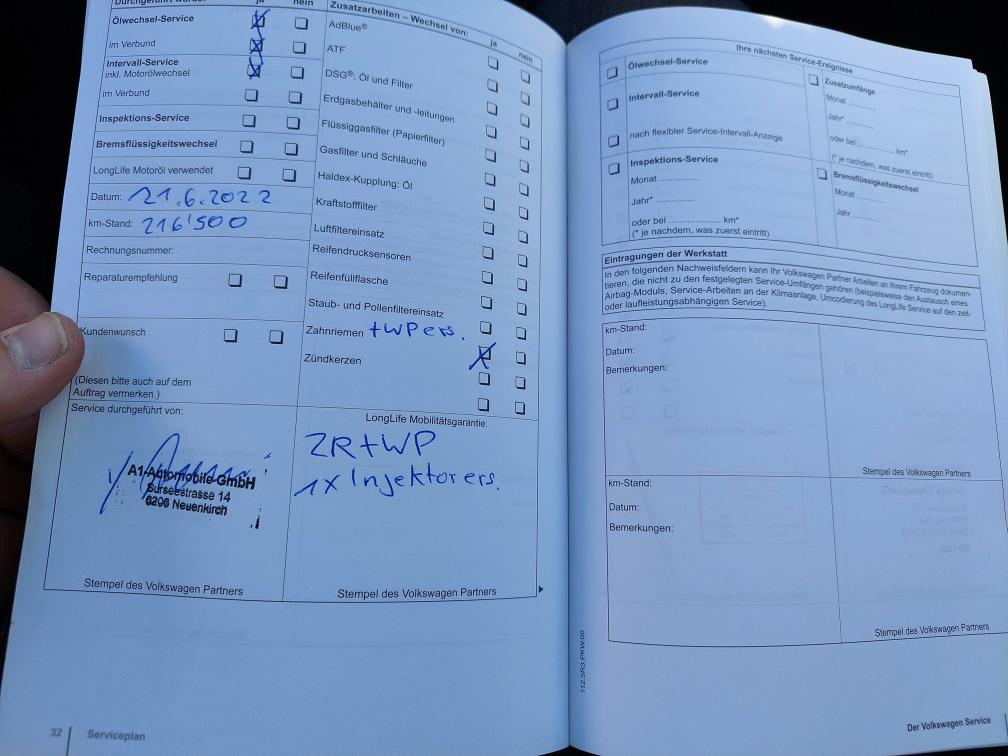 Durchgeführt wurde: ja nein
Ölwechsel-Service
im Verbund
Intervall-Service
inkl. Motorölwechsel
im Verbund
Inspektions-Service
Bremsflüssigkeitswechsel
LongLife Motoröl verwendet
Datum: 21.6.2022
km-Stand: 216'500
Rechnungsnummer:
Reparaturempfehlung
Kundenwunsch
(Diesen bitte auch auf dem
Auftrag vermerken.)
Service durchgeführt von:
A1-Automobile GmbH
Surseestrasse 14
6206 Neuenkirch
Stempel des Volkswagen Partners
Zusatzarbeiten – Wechsel von:
ja nein
AdBlue®
ATF
DSG®: Öl und Filter
Erdgasbehälter und -leitungen
Flüssiggasfilter (Papierfilter)
Gasfilter und Schläuche
Haldex-Kupplung: Öl
Kraftstofffilter
Luftfiltereinsatz
Reifendrucksensoren
Reifenfüllflasche
Staub- und Pollenfiltereinsatz
Zahnriemen +WP ers.
Zündkerzen
LongLife Mobilitätsgarantie:
ZR+WP
1x Injektor ers.
Stempel des Volkswagen Partners
32 Serviceplan
Ihre nächsten Service-Ereignisse
Ölwechsel-Service
Intervall-Service
nach flexibler Service-Intervall-Anzeige
Inspektions-Service
Monat ..............
Jahr* ..............
oder bei .................... km*
(* je nachdem, was zuerst eintritt)
Zusatzumfänge
Monat ..........
Jahr* ..........
oder bei ............. km*
(* je nachdem, was zuerst eintritt)
Bremsflüssigkeitswechsel
Monat ..........
Jahr ..........
Eintragungen der Werkstatt
In den folgenden Nachweisfeldern kann Ihr Volkswagen Partner Arbeiten an Ihrem Fahrzeug dokumen-
tieren, die nicht zu den festgelegten Service-Umfängen gehören (beispielsweise den Austausch eines
Airbag-Moduls, Service-Arbeiten an der Klimaanlage, Umcodierung des LongLife Service auf den zeit-
oder laufleistungsabhängigen Service).
km-Stand:
Datum:
Bemerkungen:
Stempel des Volkswagen Partners
km-Stand:
Datum:
Bemerkungen:
Stempel des Volkswagen Partners
112.5R3.PKW.00
Der Volkswagen Service